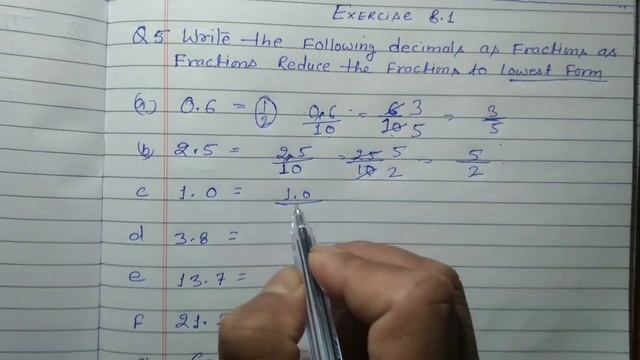 Exercise 8.1
Q5 Write the Following decimals as Fractions as
Fractions Reduce the fractions to lowest form
(a) 0.6 = 1/2 0.6/10 = 6 3/10 5 = 3/5
(b) 2.5 = 2.5/10 = 25 5/10 2 = 5/2
c 1.0 = 1.0
d 3.8 =
e 13.7 =
f 21.